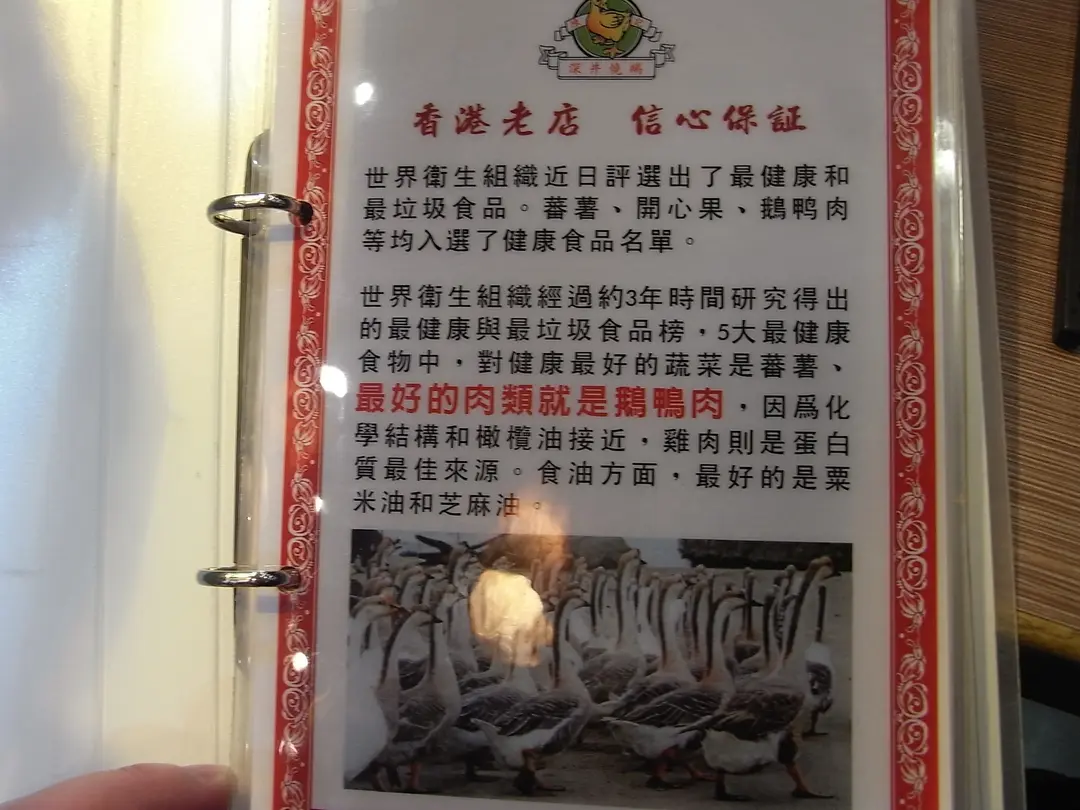 深井燒鵝
香港老店 信心保証
世界衛生組織近日評選出了最健康和
最垃圾食品。蕃薯、開心果、鵝鸭肉
等均入選了健康食品名單。
世界衛生組織經過約3年時間研究得出
的最健康與最垃圾食品榜，5大最健康
食物中，對健康最好的蔬菜是蕃薯、
最好的肉類就是鵝鴨肉，因爲化
學結構和橄欖油接近，雞肉則是蛋白
質最佳來源。食油方面，最好的是粟
米油和芝麻油。